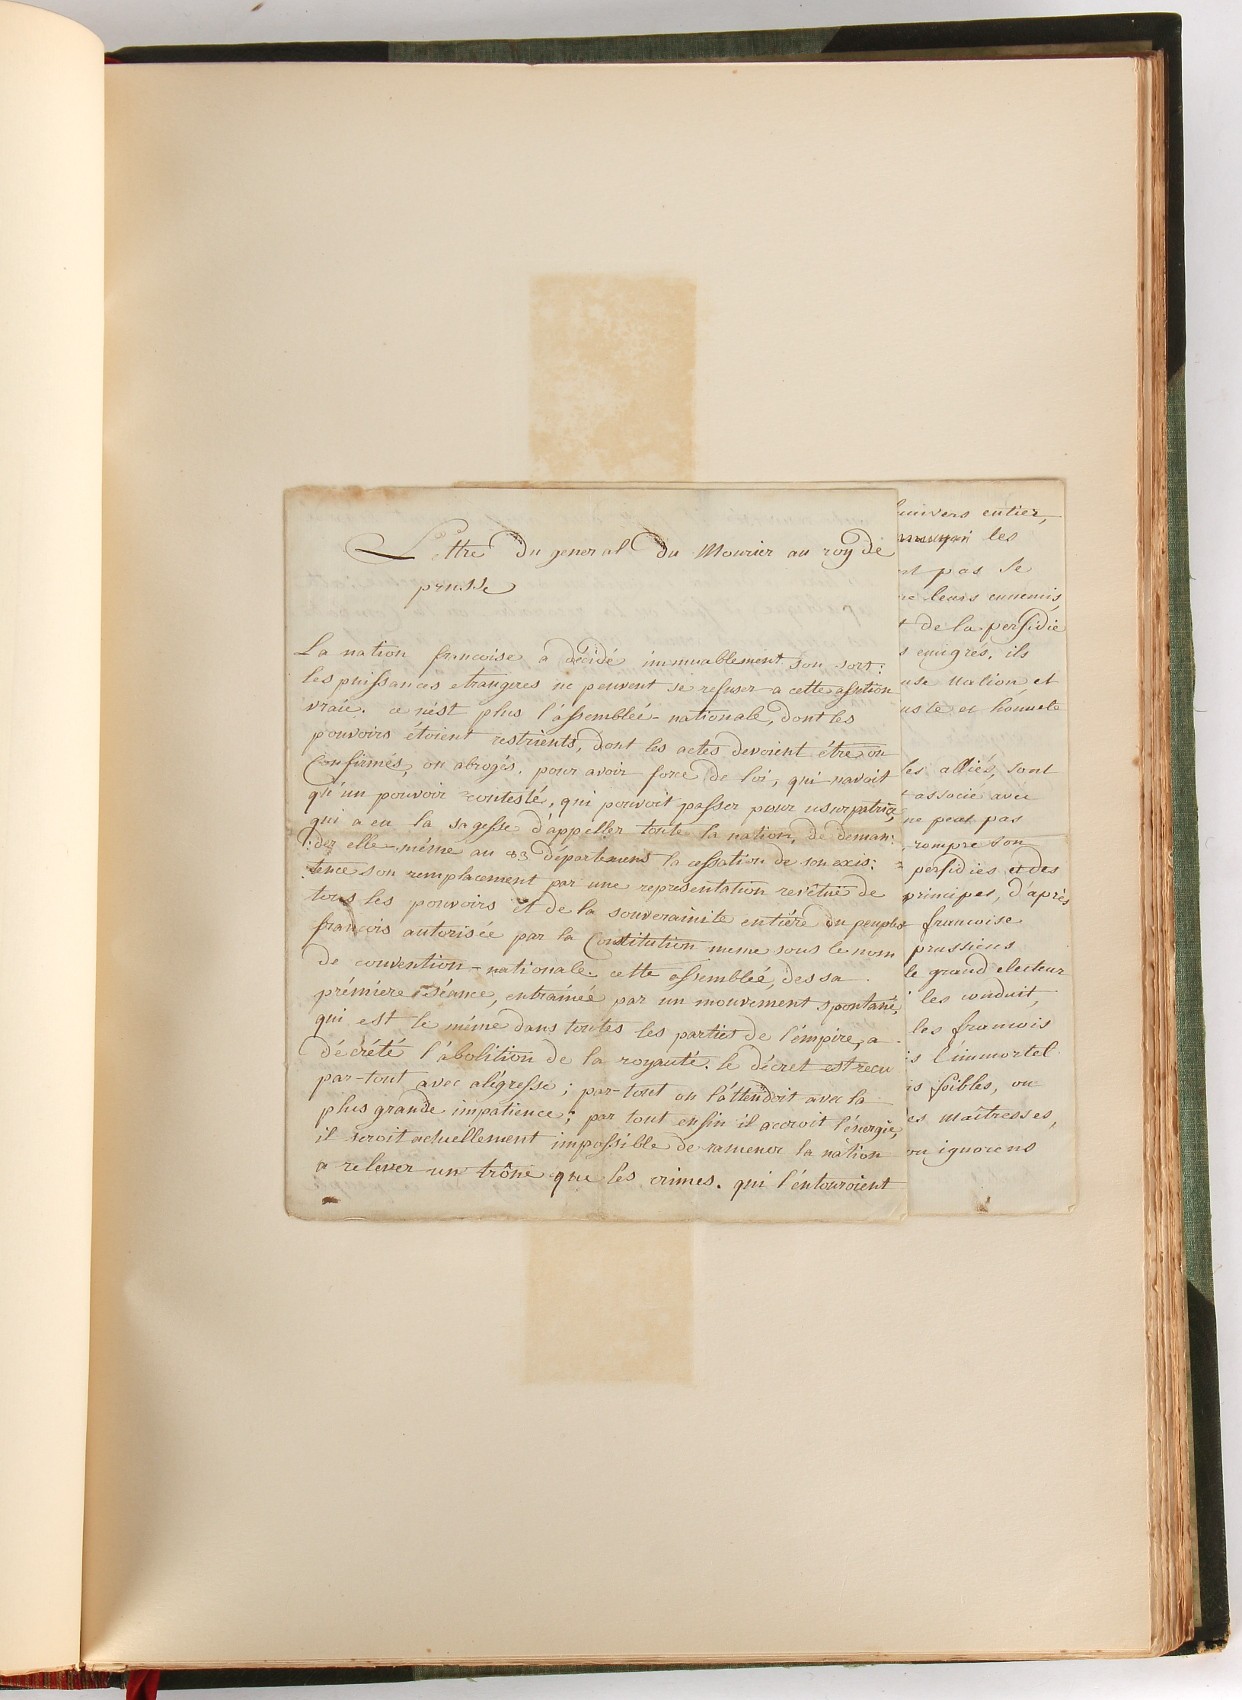 Lettre du general du Mourier au roy de
prusse
La nation françoise a décidé immuablement son sort:
les puissances etrangeres ne peuvent se refuser a cette assertion
vraie. ce n'est plus l'assemblée-nationale, dont les
pouvoirs étoient restrients, dont les actes devoient être ou
Confirmés, ou abrogés, pour avoir force de loi, qui navoit
qu'un pouvoir contesté, qui pouvoit passer pour usurpatrice,
qui a eu la sagesse d'appeller toute la nation, de deman:
:der elle-même au 83 départemens la cessation de son exis:
:tence son remplacement par une representation revêtue de
tous les pouvoirs et de la souverainite entiére du peuple
françois autorisée par la Constitution meme sous le nom
de convention-nationale. cette assemblée, des sa
première séance, entraînée par un mouvement spontané,
qui est le même dans toutes les parties de l'émpire, a
décrété l'abolition de la royauté. le décret est recu
par-tout avec alégresse; par-tout on l'attendoit avec la
plus grande impatience; par tout enfin il accroit l'énergie,
il seroit actuellement impossible de ramener la nation
a relever un trône que les crimes. qui l'entouroient
univers entier,
les
pas se
leurs ennemis,
de la perfidie
emigrés. ils
nation et
et honnete
les alliés, sont
associé avec
ne peut pas
rompre son
perfidies et des
principes, d'après
francoise
prussiens
le grand electeur
les conduit,
les francois
l'immortel
foibles, ou
maîtresses,
ou ignorens